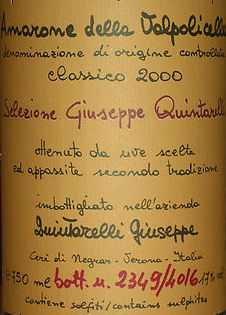 Amarone della Valpolicella
denominazione di origine controllata
classico 2000
Selezione Giuseppe Quintarelli
ottenuto da uve scelte
ed appassite secondo tradizione
imbottigliato nell'azienda
Quintarelli Giuseppe
Cerè di Negrar - Verona - Italia
e 750 ml bott. n. 2349/4016 17% vol
contiene solfiti/contains sulphites